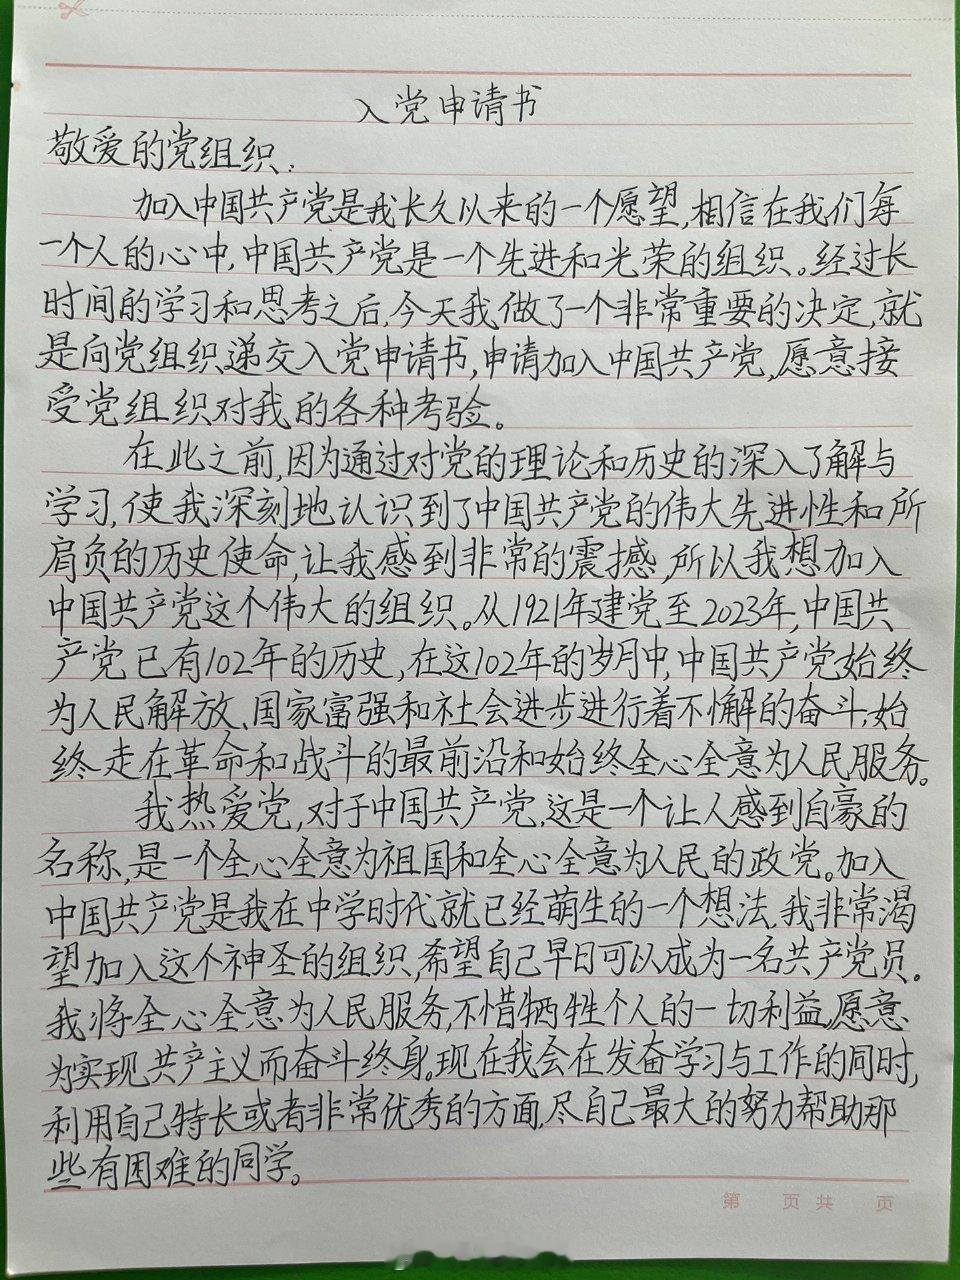 入党申请书
敬爱的党组织:
加入中国共产党是我长久以来的一个愿望,相信在我们每
一个人的心中,中国共产党是一个先进和光荣的组织。经过长
时间的学习和思考之后,今天我做了一个非常重要的决定,就
是向党组织递交入党申请书,申请加入中国共产党,愿意接
受党组织对我的各种考验。
在此之前,因为通过对党的理论和历史的深入了解与
学习,使我深刻地认识到了中国共产党的伟大先进性和所
肩负的历史使命,让我感到非常的震撼,所以我想加入
中国共产党这个伟大的组织。从1921年建党至2023年,中国共
产党已有102年的历史,在这102年的岁月中,中国共产党始终
为人民解放、国家富强和社会进步进行着不懈的奋斗,始
终走在革命和战斗的最前沿和始终全心全意为人民服务。
我热爱党,对于中国共产党,这是一个让人感到自豪的
名称,是一个全心全意为祖国和全心全意为人民的政党。加入
中国共产党是我在中学时代就已经萌生的一个想法,我非常渴
望加入这个神圣的组织,希望自己早日可以成为一名共产党员。
我将全心全意为人民服务,不惜牺牲个人的一切利益,愿意
为实现共产主义而奋斗终身。现在我会在发奋学习与工作的同时,
利用自己特长或者非常优秀的方面,尽自己最大的努力帮助那
些有困难的同学。
第 页 共 页